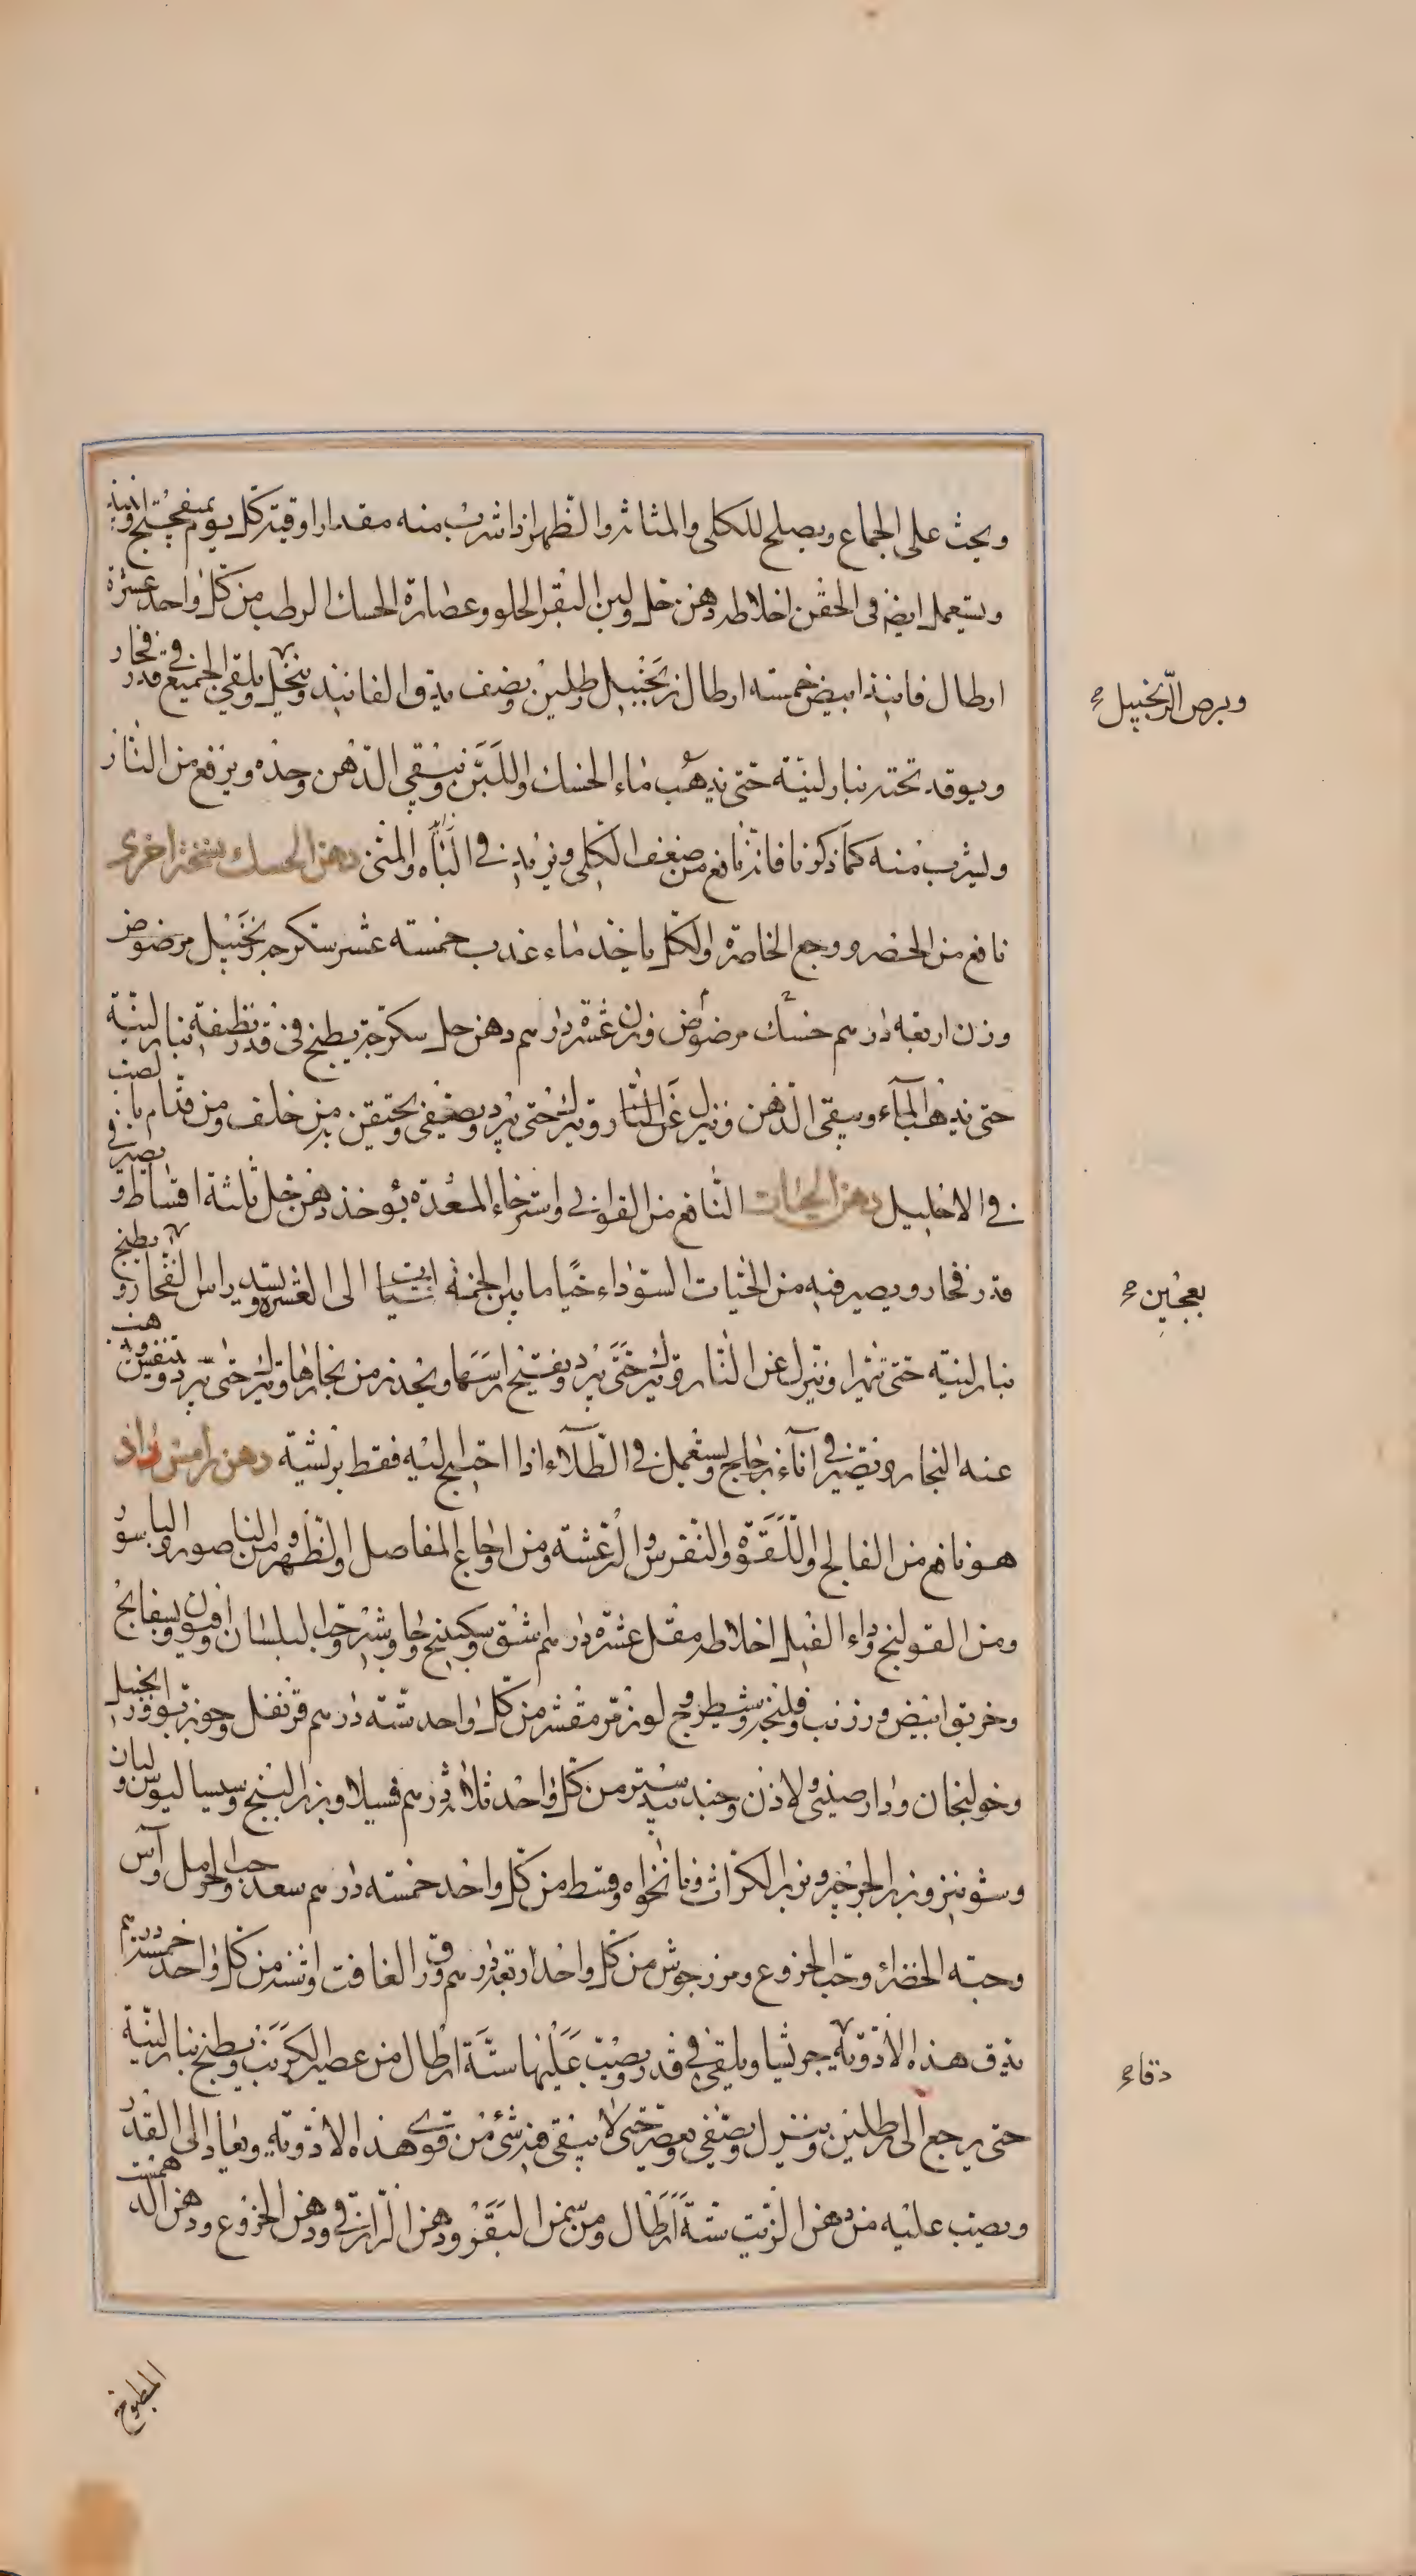 ويحث على الجماع ويصلح للكلى والمثانة والظهر اذا شرب منه مقدار اوقية كل يوم بميفختج او نبيذ
ويستعمل ايضا في الحقن اخلاطه دهن خل ولبن البقر الحلو وعصارة الحسك الرطب من كل واحد عشرة
ارطال فانيذ ابيض خمسة ارطال زنجبيل رطلين ونصف يدق الفانيذ وينخل ويلقى الجميع في قدر فخار
ويوقد تحته بنار لينة حتى يذهب ماء الحسك واللبن ويبقى الدهن وحده ويرفع من النار
ويشرب منه كما ذكرنا فانه نافع من ضعف الكلى ويزيد في الباه والمنى دهن الحسك نسخة اخرى
نافع من الحصر ووجع الخاصرة والكلى ياخذ ماء عذب خمسة عشر سكرجه زنجبيل مرضوض
وزن اربعة دراهم حسك مرضوض وزن عشرة دراهم دهن حل سكرجة يطبخ في قدر نظيفة بنار لينة
حتى يذهب الماء ويبقى الدهن وينزل عن النار ويترك حتى يبرد ويصفى ويحتقن به من خلف ومن قدام بان يصب
في الاحليل دهن الحيات النافع من القوابي واسترخاء المعدة يؤخذ دهن خل ثلثة اقساط ويصير في
قدر فخار ويصير فيه من الحيات السوداء حيا ما بين الخمسة حيات الى العشرة ويسد راس الفخار ويطبخ
بنار لينة حتى تتهرا وينزل عن النار ويترك حتى يبرد ويفتح راسها ويحذر من بخارها ويترك حتى يبرد
عنه البخار ويصير في اناء زجاج ويستعمل في الطلاء اذا احتيج ليه فقط بريشة دهن رامش زاد
هو نافع من الفالج واللقوة والنقرس والرعشة ومن اوجاع المفاصل والظهر ومن الناصور والباسور
ومن القولنج وداء الفيل اخلاطه مقل عشرة دراهم اشق وسكبينج وجاوشير وحب البلسان وافيون وبسفايج
وخربق ابيض وزرنب وفلنجة وشيطرج ولوز مر مقشر من كل واحد ستة دراهم قرنفل وجوز بوا وزنجبيل
وخولنجان ودارصيني ولاذن وجندبيدستر من كل واحد ثلاثة دراهم فسيلا وبزر البنج وسيساليوس ولبان
وشونيز وبزر الجرجير وبزر الكراث ونانخواه وقسط من كل واحد خمسة دراهم سعد وحب الحرمل وآس
وحبة الخضراء وحب الخروع ومرزجوش من كل واحد اربعة دراهم ورق الغافت واشنه من كل واحد خمسة دراهم
يدق هذه الادوية جريشا ويلقى في قدر ويصب عليها ستة ارطال من عصير الكرنب ويطبخ بنار لينة
حتى يرجع الى رطلين وينزل ويصفى ويعصر حتى لا يبقى فيه شئ من قوى هذه الادوية ويعاد الى القدر
ويصب عليه من دهن الزيت ستة ارطال ومن سمن البقر ودهن الرازقي ودهن الخروع ودهن الدهمست
وبرض الزنجبيل
يعجبين
دقاء
المطبوخ